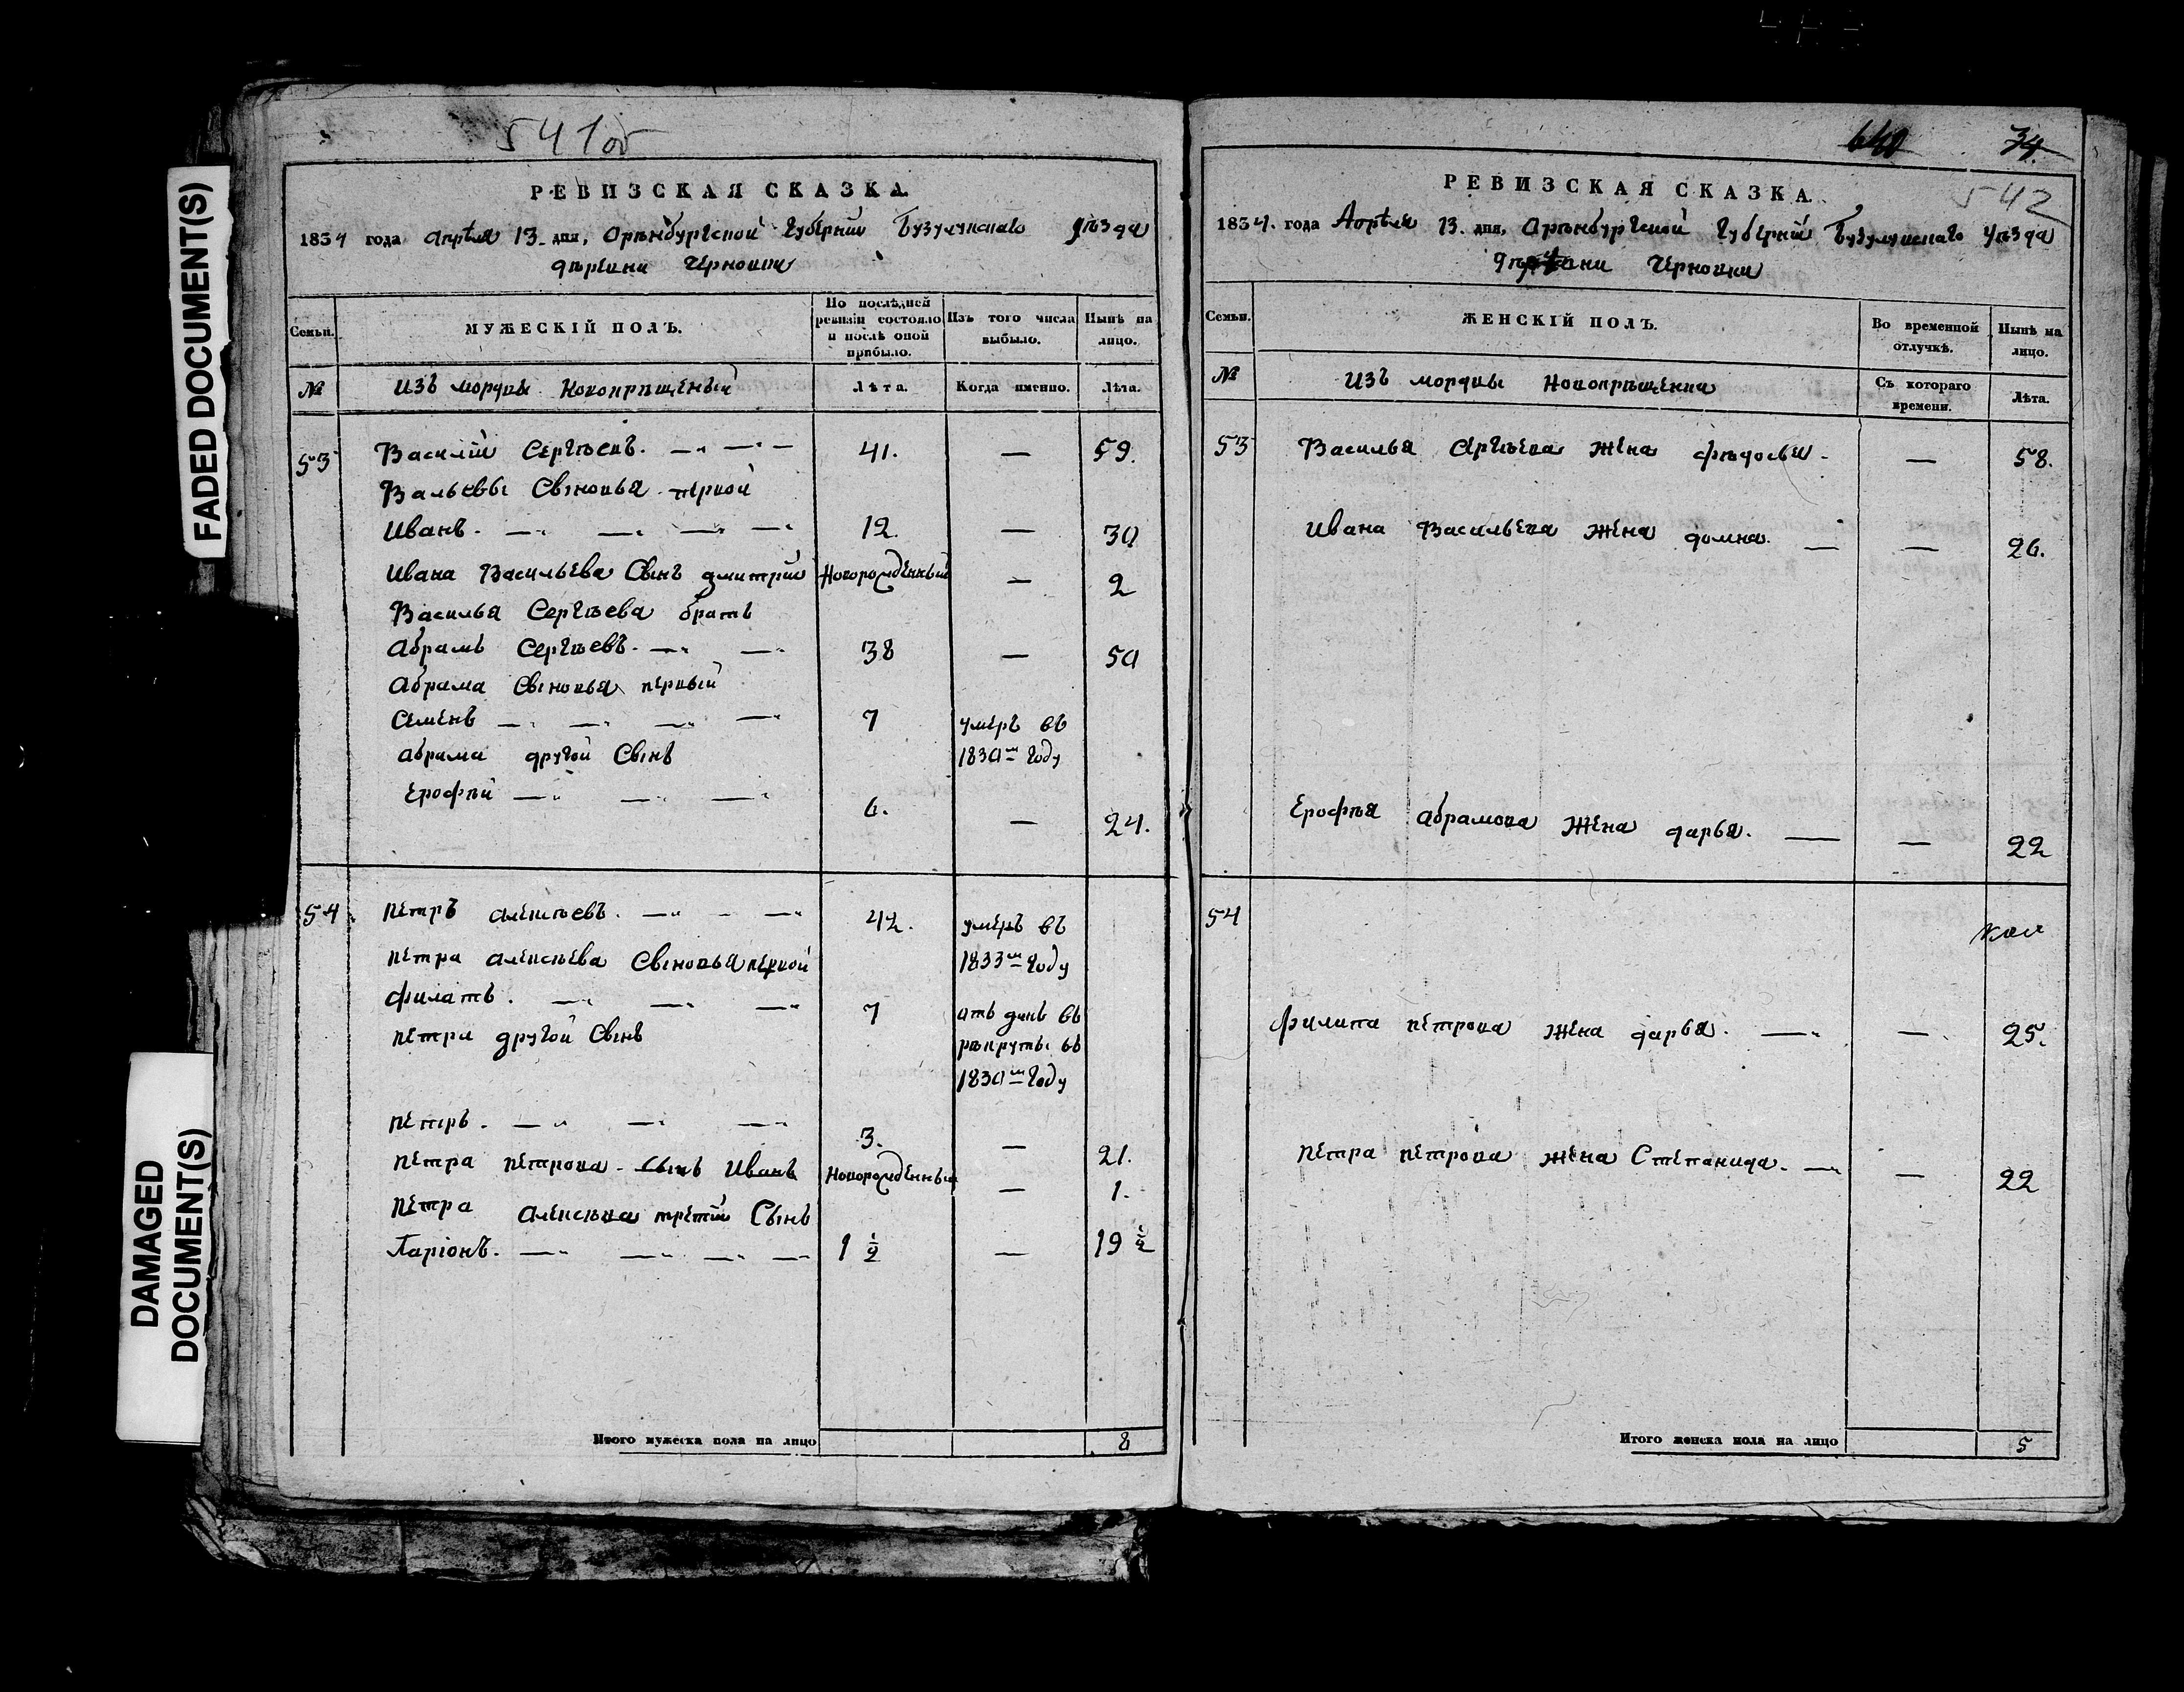 FADED DOCUMENT(S)
DAMAGED DOCUMENT(S)
541об
РЕВИЗСКАЯ СКАЗКА.
1834 года апрѣля 13 дня, Оренбургской Губернии Бузулукскаго уѣзда
дѣревни Черновки
Семьи.
МУЖЕСКІЙ ПОЛЪ.
По послѣдней ревизіи состояло и послѣ оной прибыло.
Изъ того числа выбыло.
Нынѣ на лицо.
№
Изъ мордвы Новокрѣщеный
Лѣта.
Когда именно.
Лѣта.
53 Василій Сергѣевъ. 41. — 59.
Сыновья первой
Иванъ. 12. — 30
Ивана Васильева Сынъ дмитрій Новорожденный — 2
Василья Сергѣева братъ
Абрамъ Сергѣевъ. 38 — 50
Абрама Сыновья первый
Семенъ 7 умеръ въ
Абрама другой Сынъ 1830м Году
Ерофѣй 6. — 24.
54. Петръ Алексѣевъ. 42. умеръ въ
Петра Алексѣева Сыновья первой 1833м Году
Филатъ. 7 атъ данъ въ
Петра другой Сынъ рѣкруты въ
1830м Году
Петръ. 3. — 21.
Петра Петрова Сынъ Иванъ Новорожденный — 1.
Петра Алексѣева третій Сынъ
Ларіонъ. 1 1/2 — 19 1/2
Итого мужеска пола на лицо 8
640 34
542
РЕВИЗСКАЯ СКАЗКА.
1834. года Апрѣля 13. дня, Оренбургской Губерній Бузулукскаго уѣзда
Черновки
Семьи.
ЖЕНСКІЙ ПОЛЪ.
Во временной отлучкѣ.
Нынѣ на лицо.
№
Изъ мордвы Новокрѣщенки
Съ котораго времени.
Лѣта.
53 Василья Сергѣева жена Фѣдосья — 58.
Ивана Васильева жена домна. — 26.
Ерофѣя Абрамова жена дарья. — 22
54
Филипа Петрова жена дарья. — 25.
Петра Петрова жена Степанида. — 22
Итого женска пола на лицо 5